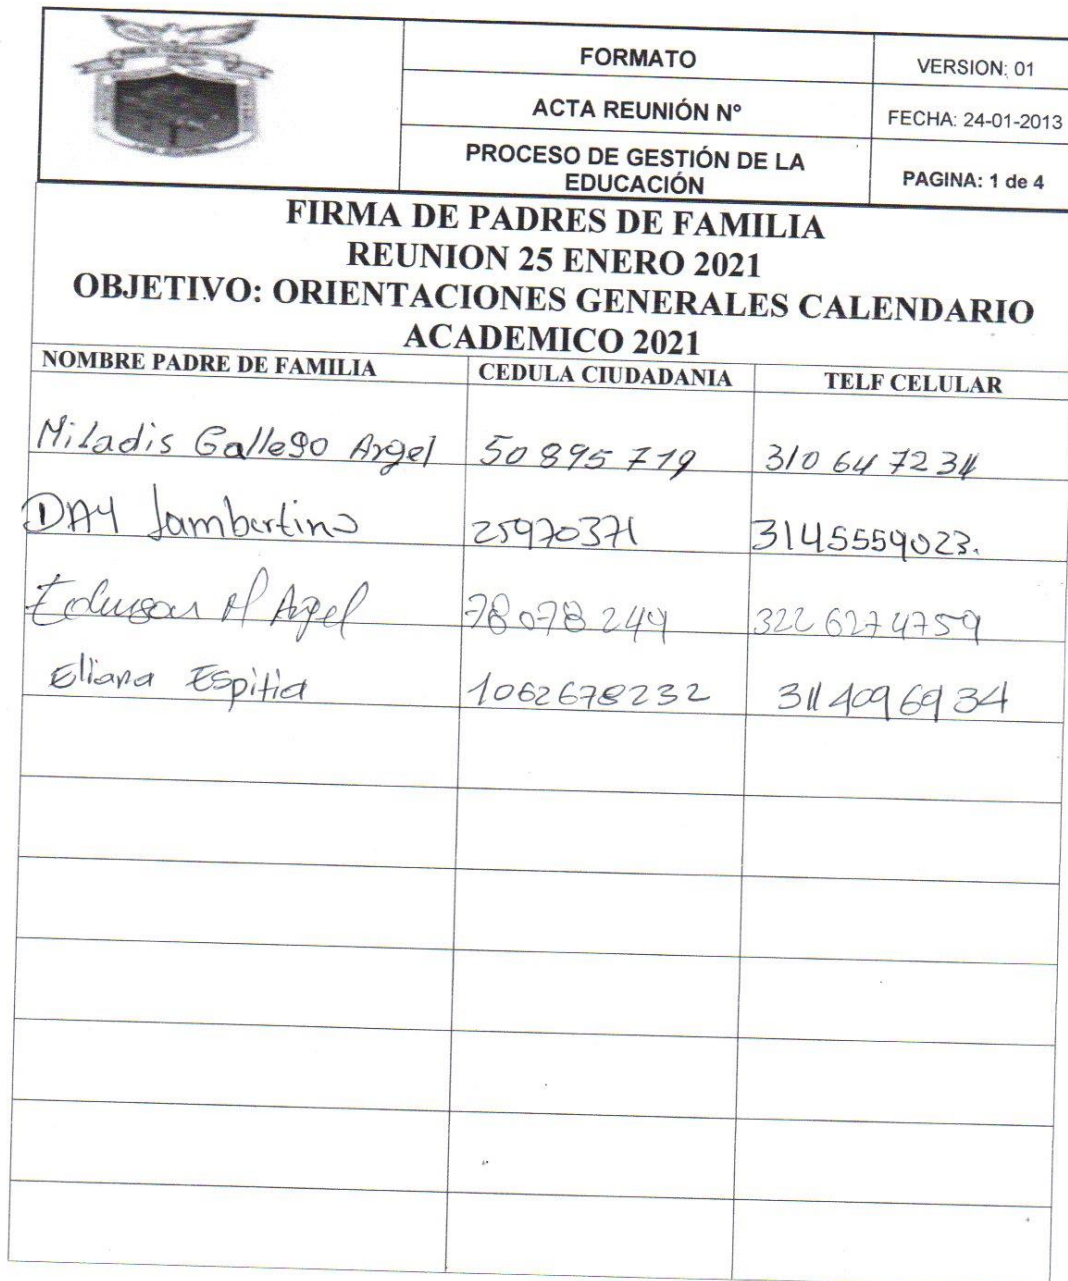 FORMATO
VERSION: 01
ACTA REUNIÓN N°
FECHA: 24-01-2013
PROCESO DE GESTIÓN DE LA
EDUCACIÓN
PAGINA: 1 de 4
FIRMA DE PADRES DE FAMILIA
REUNION 25 ENERO 2021
OBJETIVO: ORIENTACIONES GENERALES CALENDARIO
ACADEMICO 2021
NOMBRE PADRE DE FAMILIA CEDULA CIUDADANIA TELF CELULAR
Miladis Gallego Argel 50 895 719 310 647 234
DAY Lambertino 25970371 3145559023.
Argel 78078244 3226274759
Eliana Espitia 1062678232 3114096934